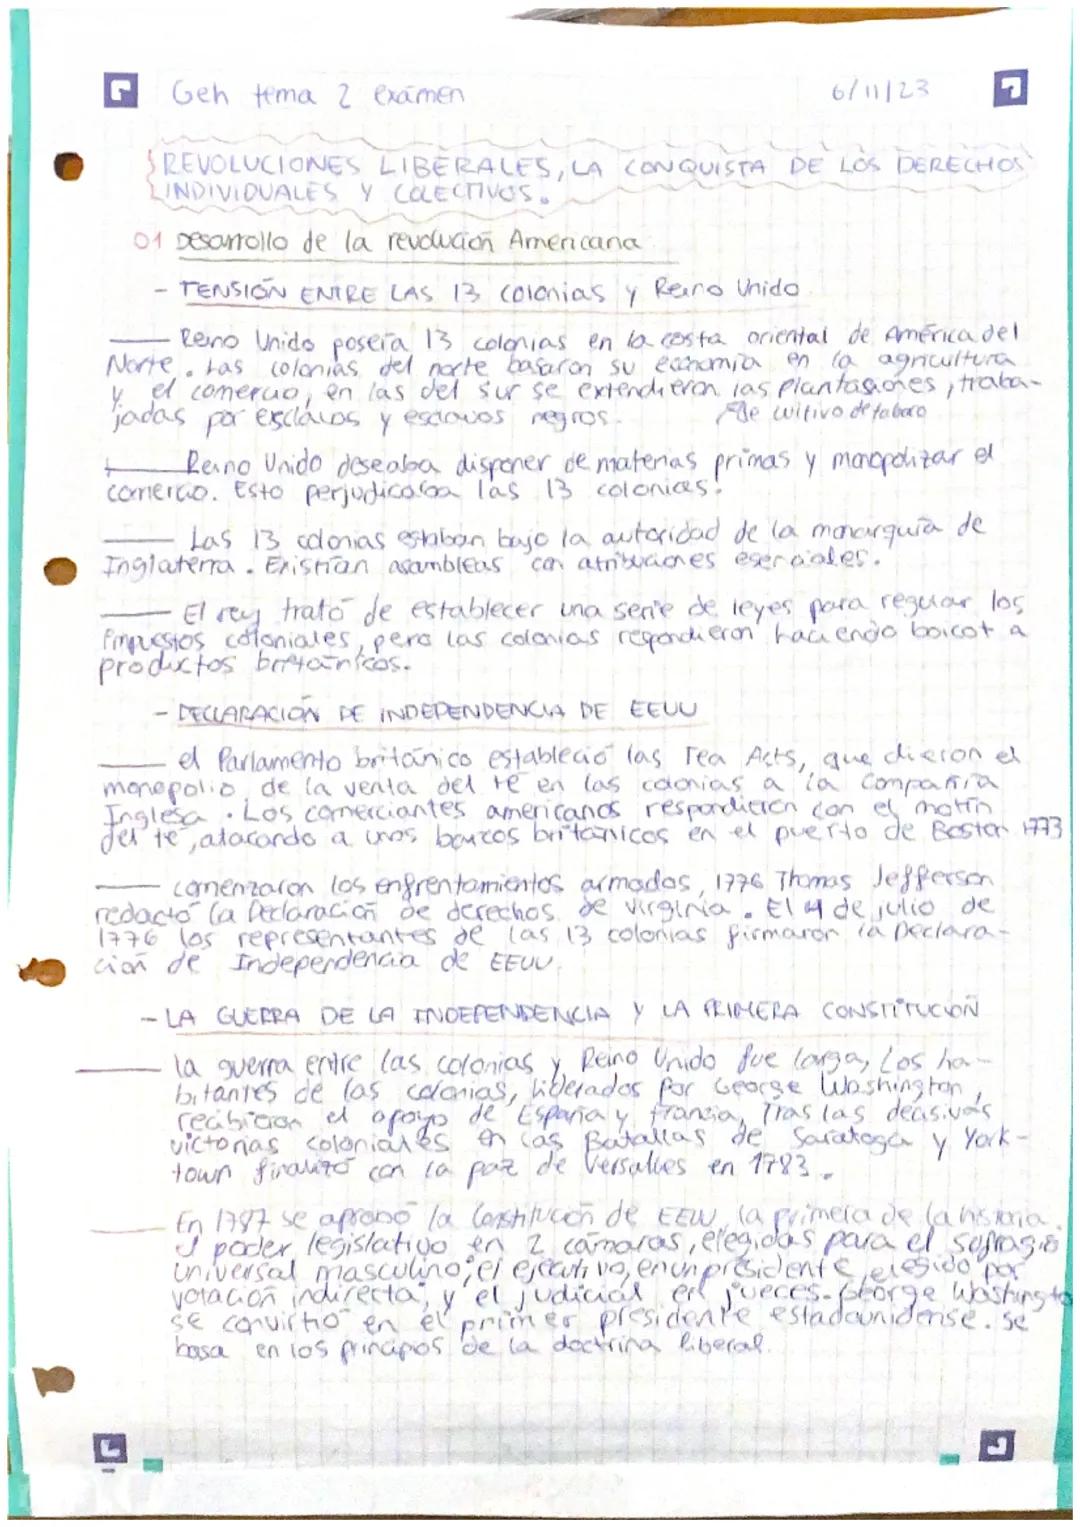 Geh tema 2 exámen 6/11/23
REVOLUCIONES LIBERALES, LA CONQUISTA DE LOS DERECHOS
INDIVIDUALES Y COLECTIVOS.
01 Desarrollo de la revolución Americana
- TENSIÓN ENTRE LAS 13 colonias y Reino Unido
Reino Unido poseía 13 colonias en la costa oriental de América del
Norte. Las colonias del norte basaron su economía en la agricultura
y el comercio, en las del sur se extendieron las plantaciones, traba-
jadas por esclavos y esclavos negros. de cultivo de tabaco
Reino Unido deseaba disponer de materias primas y monopolizar el
comercio. Esto perjudicaba las 13 colonias.
Las 13 colonias estaban bajo la autoridad de la monarquía de
Inglaterra. Existían asambleas con atribuciones esenciales.
El rey trató de establecer una serie de leyes para regular los
impuestos coloniales, pero las colonias respondieron haciendo boicot a
productos británicos.
- DECLARACIÓN DE INDEPENDENCIA DE EEUU
el Parlamento británico estableció las Tea Acts, que dieron el
monopolio de la venta del té en las colonias a la Compañía
Inglesa. Los comerciantes americanos respondieron con el motín
del té, atacando a unos barcos británicos en el puerto de Boston 1773
comenzaron los enfrentamientos armados, 1776 Thomas Jefferson
redactó la Declaración de derechos de virginia. El 4 de julio de
1776 los representantes de las 13 colonias firmaron la Declara-
ción de Independencia de EEUU.
- LA GUERRA DE LA INDEPENDENCIA Y LA PRIMERA CONSTITUCIÓN
la guerra entre las colonias y Reino Unido fue larga, Los ha-
bitantes de las colonias, liderados por George Washington,
recibieron el apoyo de España y francia, Tras las decisivas
victorias coloniales en las Batallas de Saratoga y York-
town finalizó con la paz de Versalles en 1783.
En 1787 se aprobó la Constitución de EEUU, la primera de la historia.
el poder legislativo en 2 cámaras, elegidas para el sufragio
universal masculino; el ejecutivo, en un presidente, elegido por
votación indirecta, y el judicial en jueces. George Washington
se convirtió en el primer presidente estadounidense. Se
basa en los principios de la doctrina liberal.